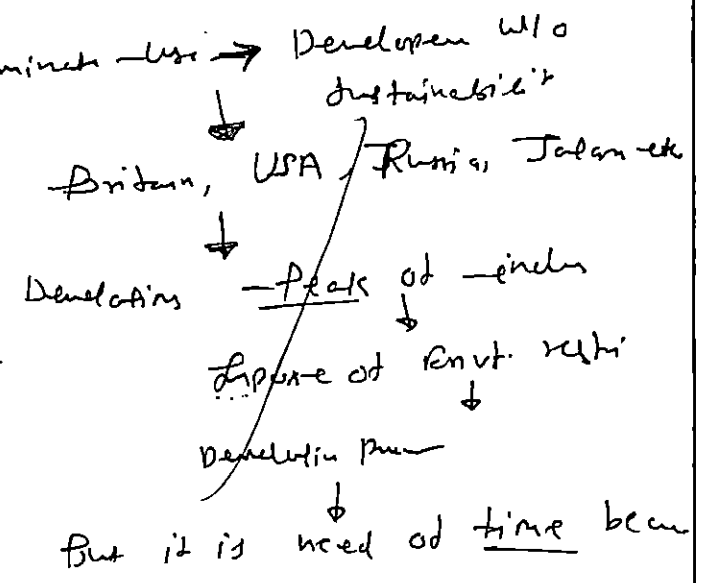 Use → Developed w/o
sustainability
Britain, USA, Russia, Japan etc
Developing - Peak of indus
Impose of Envt. restri
Developing
But it is need of time becau